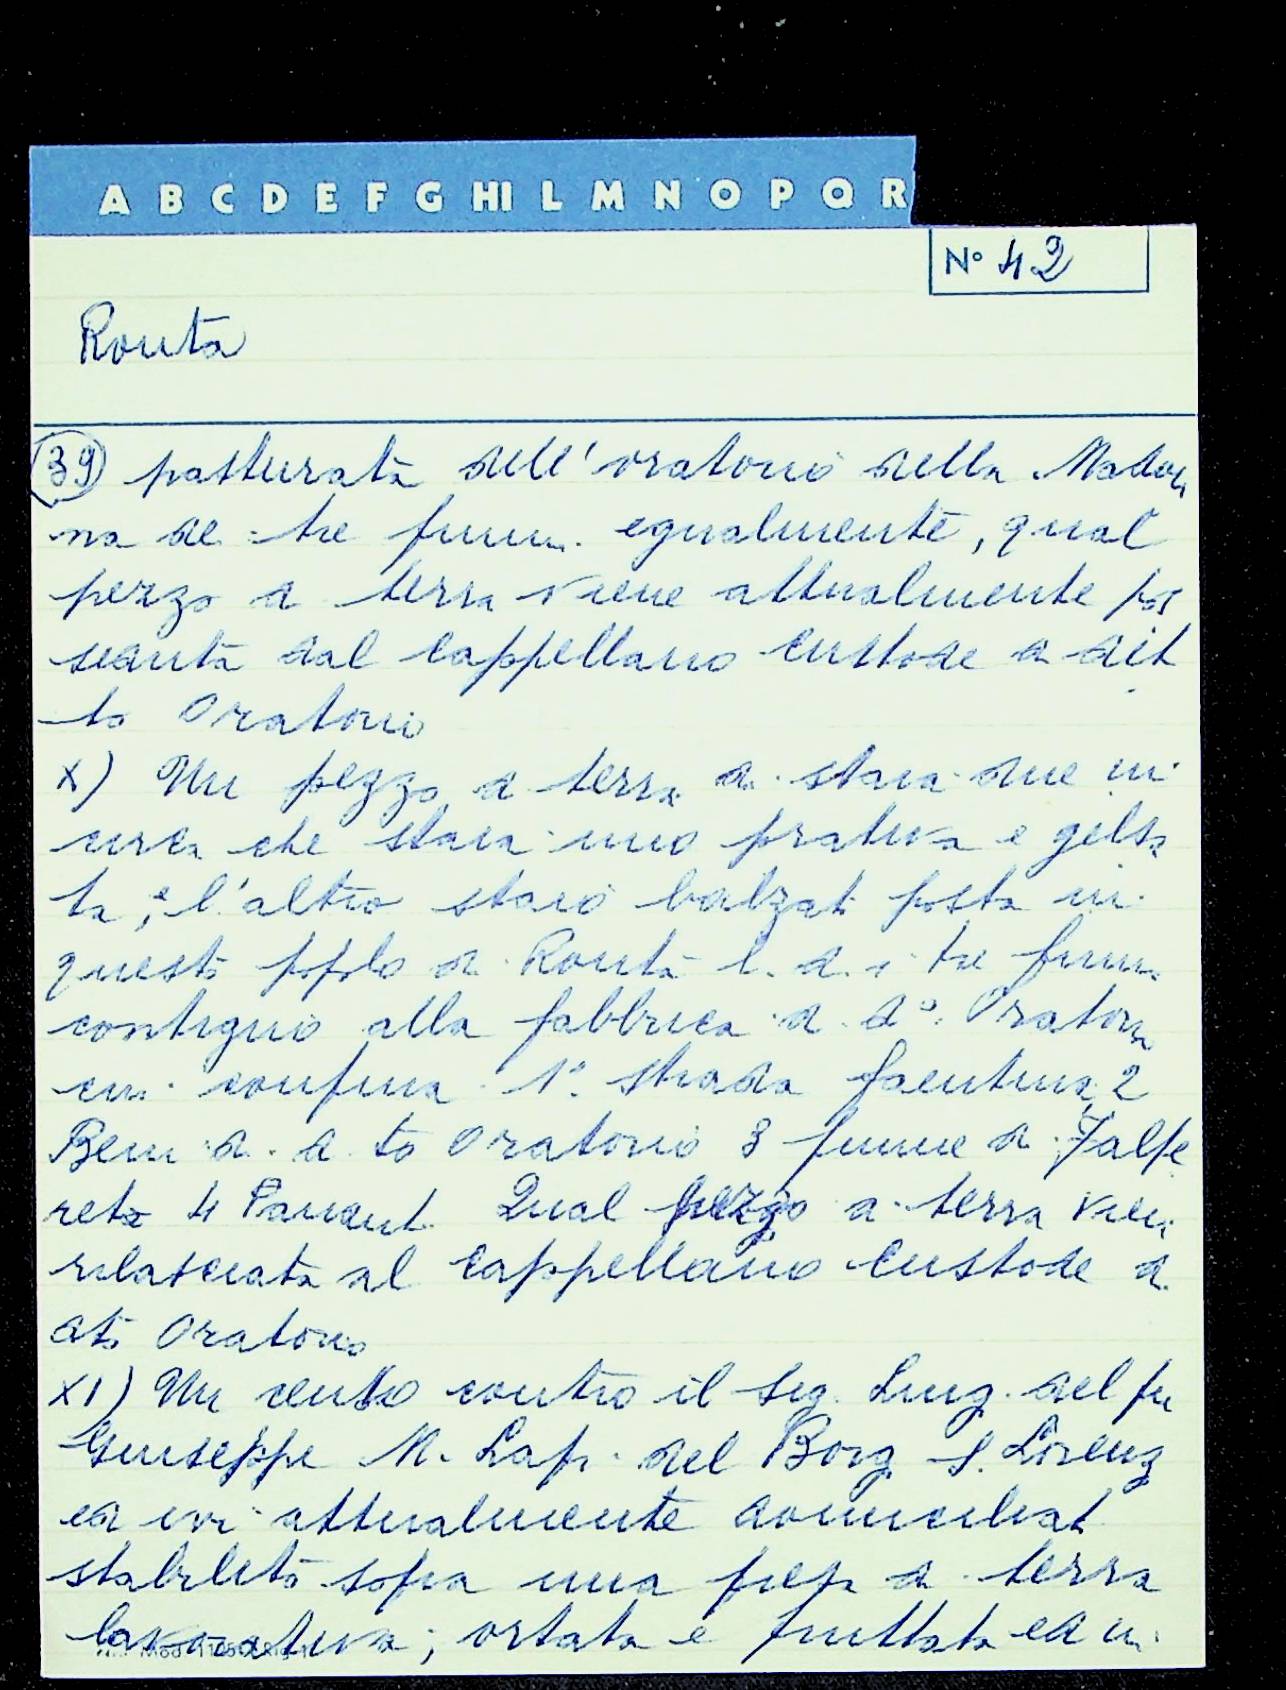 A B C D E F G HI L M N O P Q R
N° 42
Ronta
39 pasturata dell'oratorio della Madon
na de tre fium. egualmente, qual
pezzo d terra viene attualmente pos
seduta dal cappellano custode d dit
to Oratorio
X) Un pezzo d terra d. staia due in
circa che staia uno prativa e gelsa
ta, e l'altro staio balzat posta in
questo popolo d. Ronta l. d. i tre fium.
contiguo alla fabbrica d. d°. Orator
cui confina 1° strada faentina 2
Beni d. d to Oratorio 3 fiume d.
reta 4 Qual pezzo d. terra vien
rilasciata al cappellano custode d.
dto Oratorio
XI) Un censo contro il sig. Luig. del fu
Giuseppe M. Lap. del Borg S. Lorenz
ed ivi attualmente domiciliat
stabilito sopra una d. terra
lavorativa, ortata e fruttata ed in